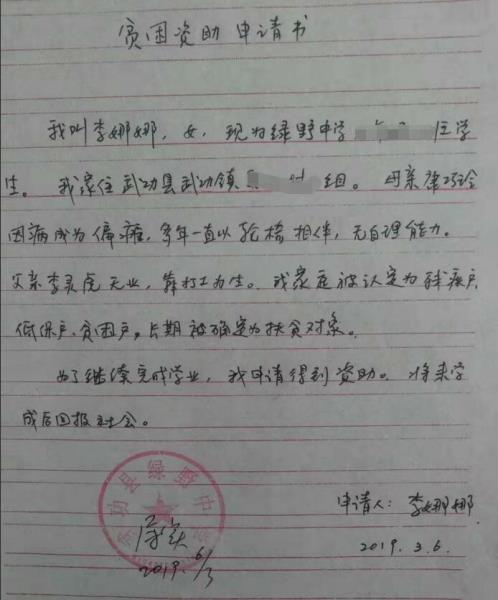 贫困资助申请书
我叫李娜娜，女，现为绿野中学 住学
生。我家住武功县武功镇 组。母亲康巧玲
因病成为偏瘫，多年一直以轮椅相伴，无自理能力。
父亲李灵虎无业，靠打工为生。我家庭被认定为残疾户
低保户、贫困户，长期被确定为扶贫对象。
为了继续完成学业，我申请得到资助。将来学
成后回报社会。
申请人：李娜娜
2019.3.6.
2019.6/3